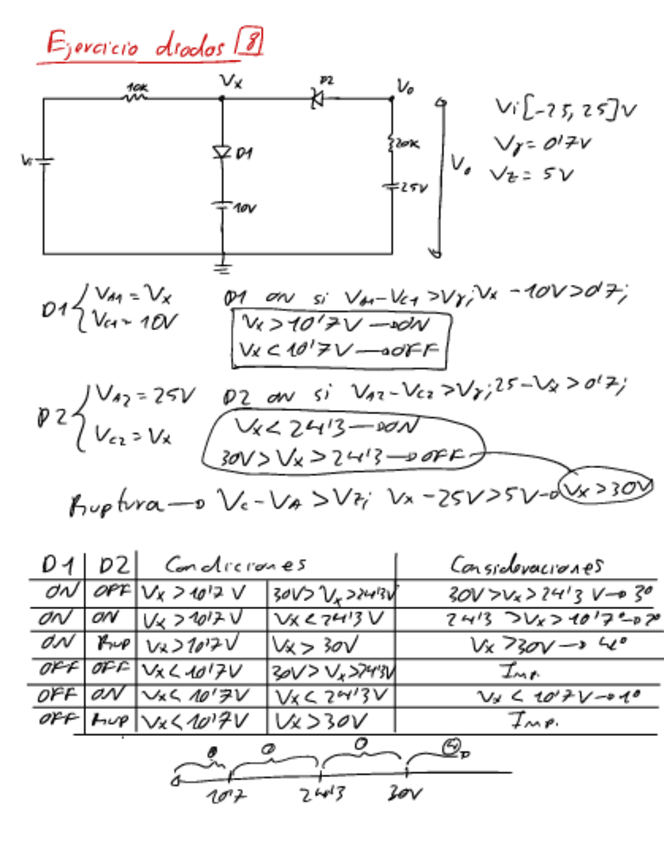 Ejercicio diodos 8
10K Vx D2 Vo
Vi D1 10V 20K 25V Vo
Vi[-25, 25]V
Vγ = 0'7V
Vz = 5V
D1 { VA1 = Vx D1 ON si VA1 - VC1 > Vγ; Vx - 10V > 0'7;
VC1 = 10V Vx > 10'7V → ON
Vx < 10'7V → OFF
D2 { VA2 = 25V D2 ON si VA2 - VC2 > Vγ; 25 - Vx > 0'7;
VC2 = Vx Vx < 24'3 → ON
30V > Vx > 24'3 → OFF
Ruptura → VC - VA > Vz; Vx - 25V > 5V → Vx > 30V
D1 D2 Condiciones Consideraciones
ON OFF Vx > 10'7V 30V > Vx > 24'3V 30V > Vx > 24'3V → 3º
ON ON Vx > 10'7V Vx < 24'3V 24'3 > Vx > 10'7 → 2º
ON Rup Vx > 10'7V Vx > 30V Vx > 30V → 4º
OFF OFF Vx < 10'7V 30V > Vx > 24'3V Imp.
OFF ON Vx < 10'7V Vx < 24'3V Vx < 10'7V → 1º
OFF Rup Vx < 10'7V Vx > 30V Imp.
4
10'7 24'3 30V